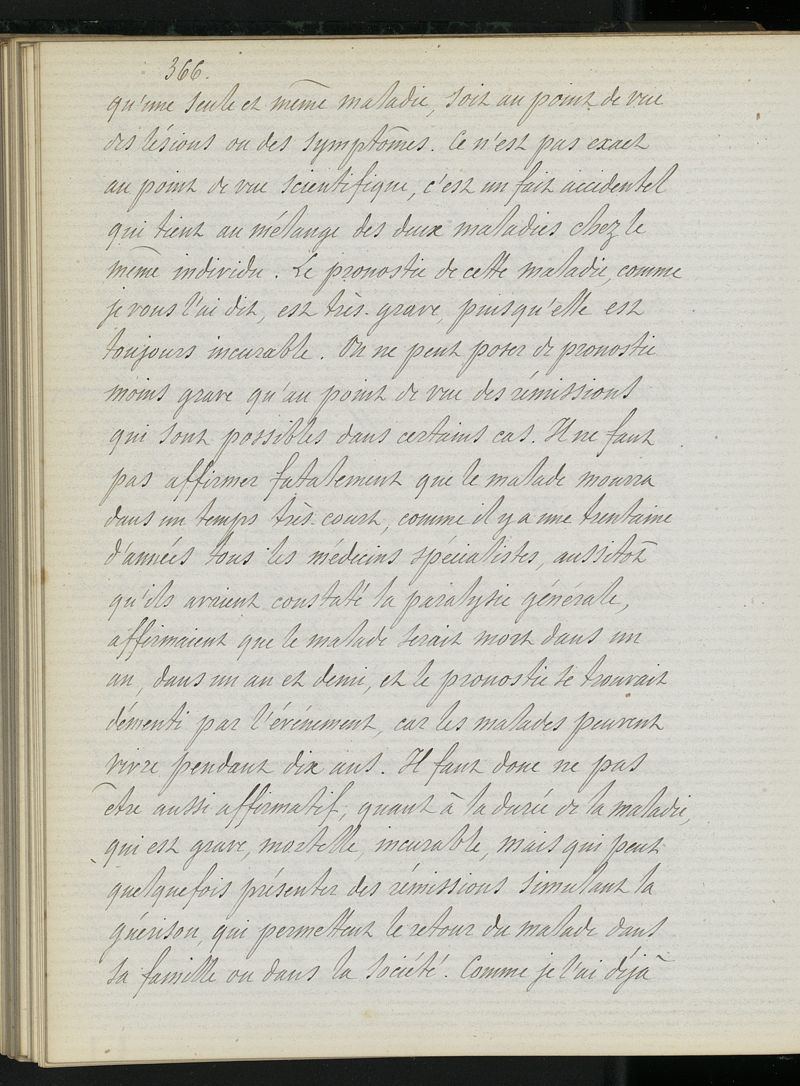 366.
qu'une seule et même maladie, soit au point de vue
des lésions ou des symptômes. Ce n'est pas exact
au point de vue scientifique, c'est un fait accidentel
qui tient au mélange des deux maladies chez le
même individu. Le pronostic de cette maladie, comme
je vous l'ai dit, est très-grave, puisqu'elle est
toujours incurable. On ne peut poser de pronostic
moins grave qu'au point de vue des rémissions
qui sont possibles dans certains cas. Il ne faut
pas affirmer fatalement que le malade mourra
dans un temps très-court, comme il y a une trentaine
d'années tous les médecins spécialistes, aussitôt
qu'ils avaient constaté la paralysie générale,
affirmaient que le malade serait mort dans un
an, dans un an et demi, et le pronostic se trouvait
démenti par l'événement, car les malades peuvent
vivre pendant dix ans. Il faut donc ne pas
être aussi affirmatif, quant à la durée de la maladie,
qui est grave, mortelle, incurable, mais qui peut
quelquefois présenter des rémissions simulant la
guérison, qui permettent le retour du malade dans
sa famille ou dans la société. Comme je l'ai déjà